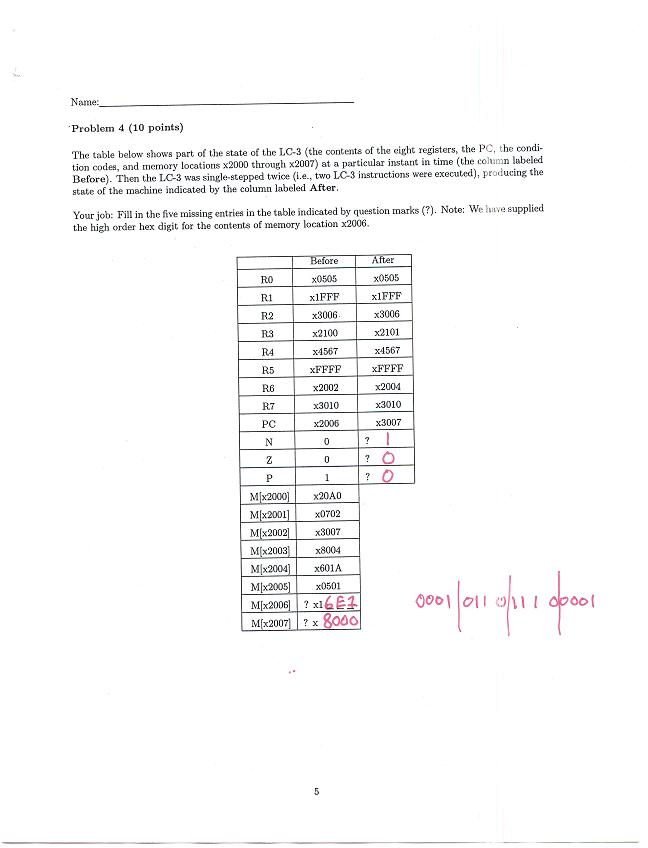 Name:
Problem 4 (10 points)
The table below shows part of the state of the LC-3 (the contents of the eight registers, the PC, the condi-
tion codes, and memory locations x2000 through x2007) at a particular instant in time (the column labeled
Before). Then the LC-3 was single-stepped twice (i.e., two LC-3 instructions were executed), producing the
state of the machine indicated by the column labeled After.
Your job: Fill in the five missing entries in the table indicated by question marks (?). Note: We have supplied
the high order hex digit for the contents of memory location x2006.
Before After
R0 x0505 x0505
R1 x1FFF x1FFF
R2 x3006 x3006
R3 x2100 x2101
R4 x4567 x4567
R5 xFFFF xFFFF
R6 x2002 x2004
R7 x3010 x3010
PC x2006 x3007
N 0 ? 1
Z 0 ? 0
P 1 ? 0
M[x2000] x20A0
M[x2001] x0702
M[x2002] x3007
M[x2003] x8004
M[x2004] x601A
M[x2005] x0501
M[x2006] ? x16E1
M[x2007] ? x 8000
0001 011 011 1 00001
5